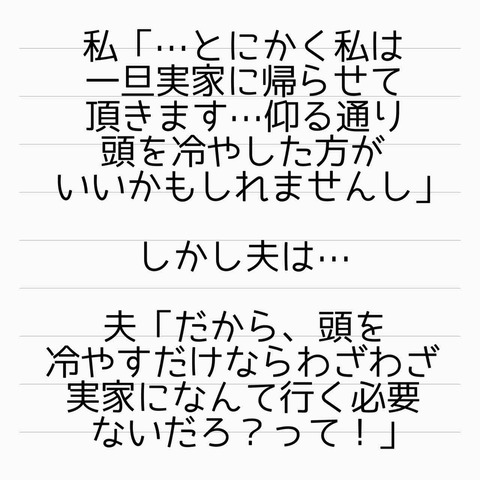 私「…とにかく私は
一旦実家に帰らせて
頂きます…仰る通り
頭を冷やした方が
いいかもしれませんし」
しかし夫は…
夫「だから、頭を
冷やすだけならわざわざ
実家になんて行く必要
ないだろ？って！」